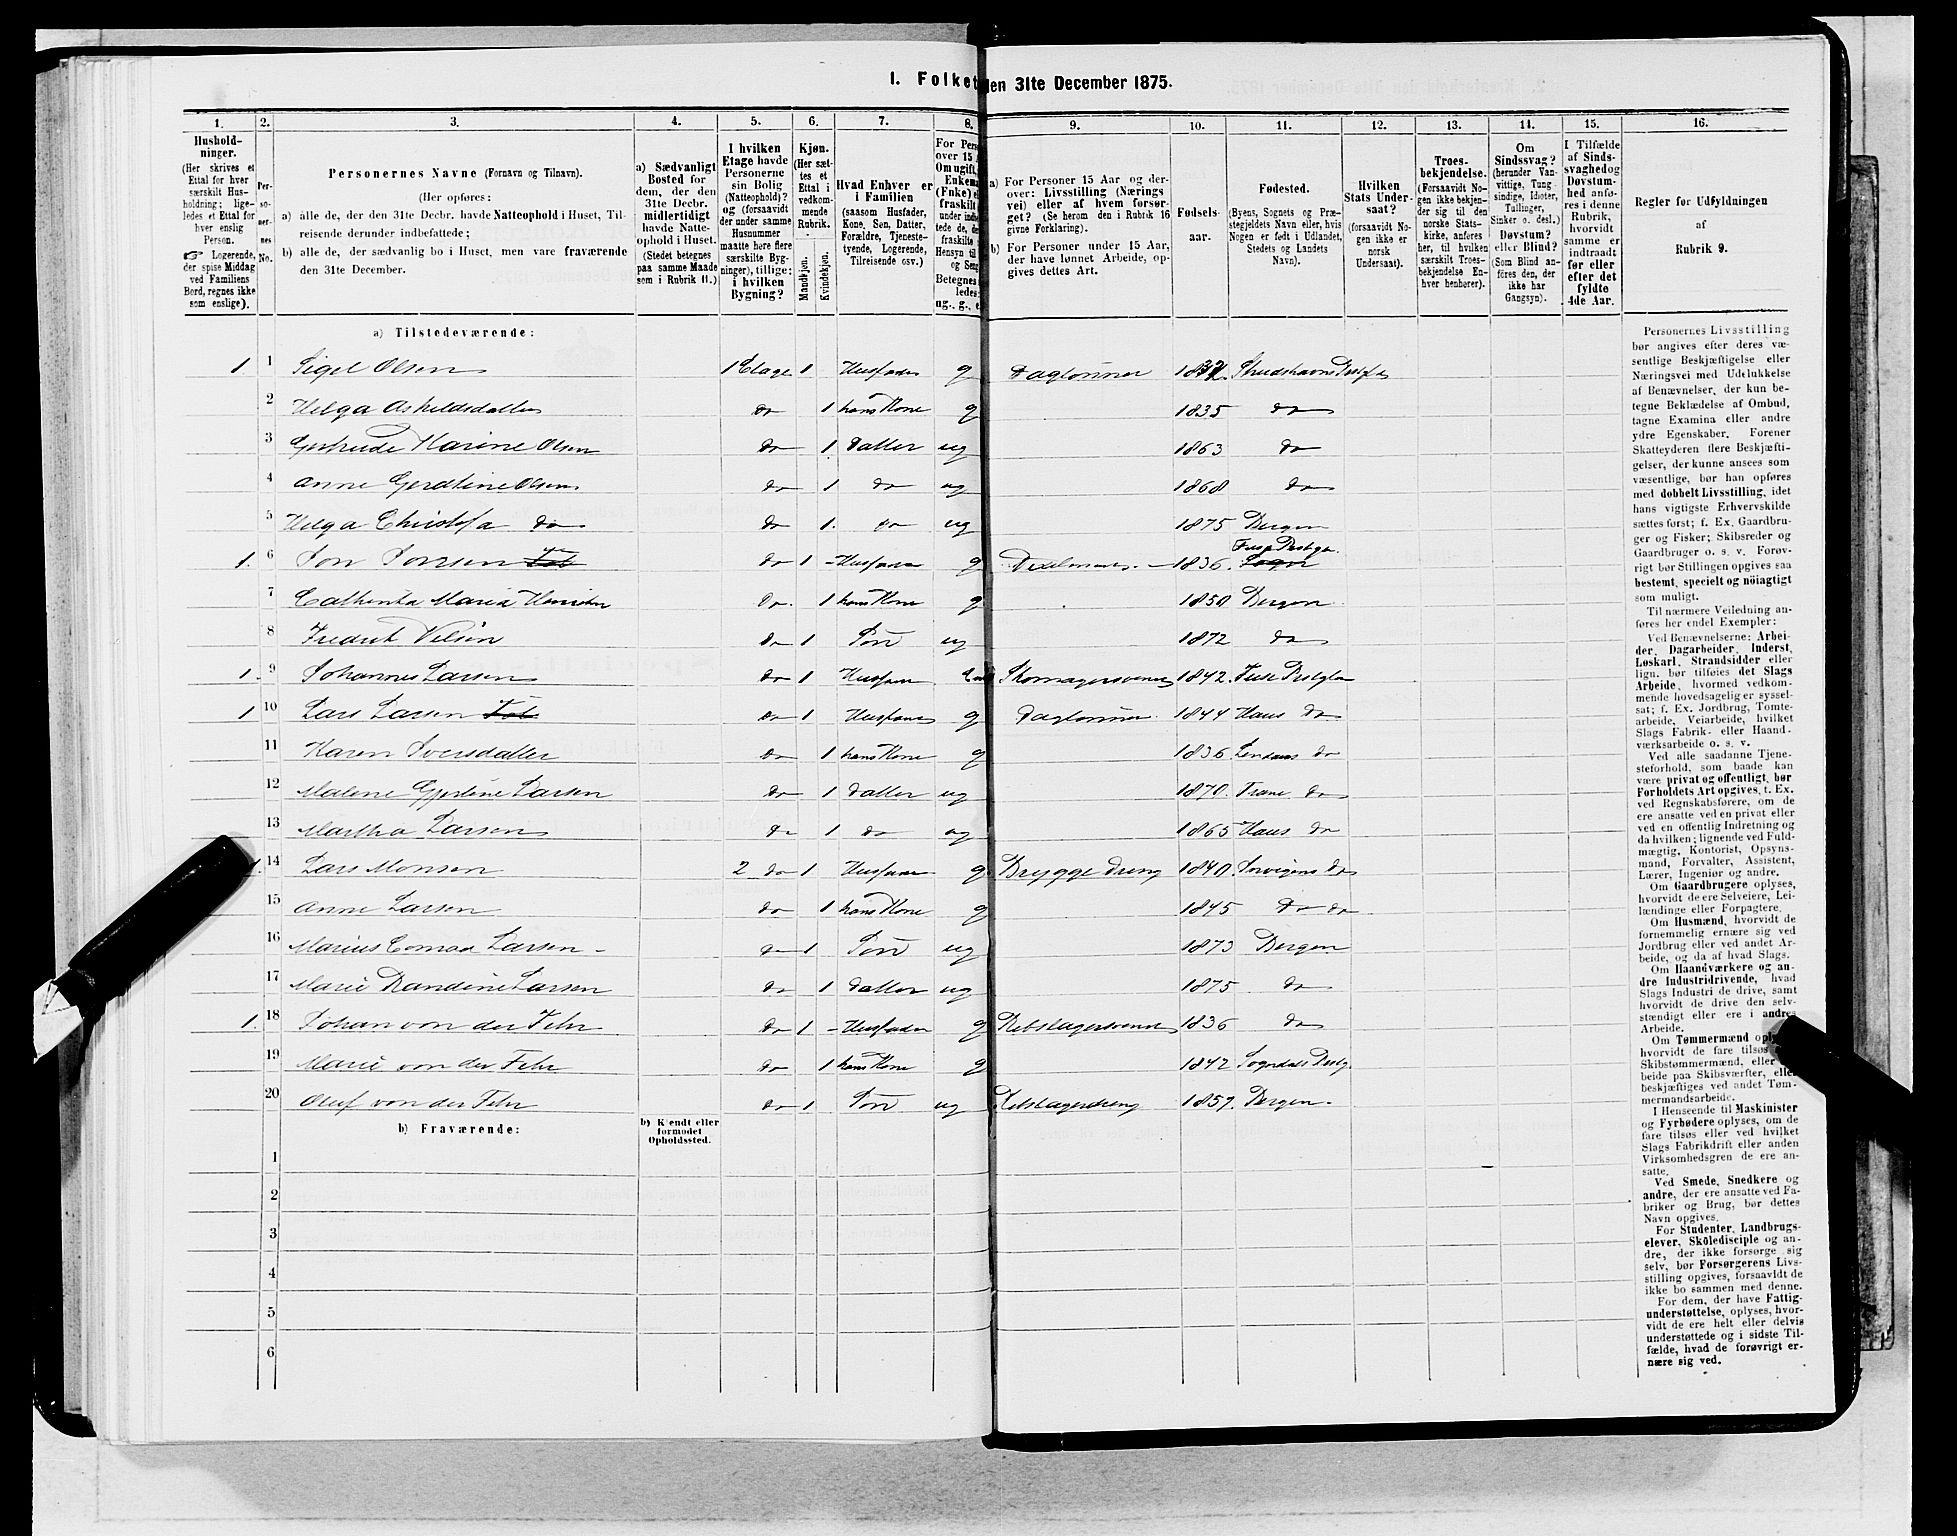 1. Folket
den 31te December 1875.
1. 2. 3. 4. 5. 6. 7. 8. 9. 10. 11. 12. 13. 14. 15. 16.
Hushold-
ninger.
(Her skrives et
Ettal for hver
særskilt Hus-
holdning; lige-
ledes et Ettal for
hver enslig
Person.
☞ Logerende,
der spise Middag
ved Familiens
Bord, regnes ikke
som enslige).
Per-
so-
ner-
nes
No.
Personernes Navne (Fornavn og Tilnavn).
(Her opføres:
a) alle de, der den 31te Decbr. havde Natteophold i Huset, Til-
reisende derunder indbefattede;
b) alle de, der sædvanlig bo i Huset, men vare fraværende
den 31te December.
a) Sædvanligt
Bosted for
dem, der den
31te Decbr.
midlertidigt
havde Natte-
ophold i Huset.
(Stedet betegnes
paa samme Maade
som i Rubrik 11.)
I hvilken
Etage havde
Personerne
sin Bolig
(Natteophold)?
og (forsaavidt
der under samme
Husnummer
maatte høre flere
særskilte Byg-
ninger), tillige:
i hvilken
Bygning?
Kjøn.
(Her sæt-
tes et
Ettal i
vedkom-
mende
Rubrik.
Mandkjøn.
Kvindekjøn.
Hvad Enhver er
i Familien
(saasom Husfader,
Kone, Søn, Datter,
Forældre, Tjeneste-
tyende, Logerende,
Tilreisende osv.)
For Pers
over 15 A
Om ugift,
Enkema
(Fnke) e
fraskilt
under indbe
tede de, d
fraskilte
Hensyn til
og Seng
Betegnes
ledes:
ug., g., e
a) For Personer 15 Aar og der-
over: Livsstilling (Nærings
vei) eller af hvem forsør-
get? (Se herom den i Rubrik 16
givne Forklaring).
b) For Personer under 15 Aar,
der have lønnet Arbeide, op-
gives dettes Art.
Fødsels-
aar.
Fødested.
(Byens, Sognets og Præ-
stegjeldets Navn eller, hvis
Nogen er født i Udlandet,
Stedets og Landets
Navn).
Hvilken
Stats Under-
saat?
(forsaavidt No-
gen ikke er
norsk
Undersaat).
Troes-
bekjendelse.
(Forsaavidt No-
gen ikke bekjen-
der sig til den
norske Stats-
kirke, anføres
her, til hvilken
særskilt Troes-
bekjendelse En-
hver henhører).
Om
Sindssvag?
(herunder Van-
vittige, Tung-
sindige, Idioter,
Tullinger,
Sinker o. desl.)
Døvstum?
eller Blind?
(Som Blind an-
føres den, der
ikke har
Gangsyn).
I Tilfælde
af Sinds-
svaghed og
Døvstum-
hed anfø-
res i denne
Rubrik,
hvorvidt
samme er
indtraadt
før eller
efter det
fyldte
4de Aar.
Regler for Udfyldningen
af
Rubrik 9.
a) Tilstedeværende:
1 1 Sigel Olsen 1 Etage 1 Husfader g Daglønner Strudshavns
2 Helga Askeldsdatter do 1 hans Kone g 1835 do
3 Gertrude Karine Olsen do 1 datter ug 1863 do
4 Anne Gerdtine Olsen do 1 do ug 1868 do
5 Helga Christofa do do 1 do ug 1875 Bergen
1. 6 Jon Jonsen do 1 Husfader g 1836. Fuse Prstgj. Sogn
7 Cathinka Maria do 1 hans Kone g 1850 Bergen
8 Fredrik Nelsen do 1 Søn ug 1872 do
1. 9 Johannes Larsen do 1 Husfader Skomagersvend 1842. Fuse Prstgj
1 10 Lars Larsen do 1 Husfader g Daglønner 1844 Haus do
11 Karen Iversdatter do 1 hans Kone g 1836 Lindaas do
12 Malene Gjertine Larsen do 1 datter ug 1870. Fane do
13 Martha Larsen do 1 do ug 1865 Haus do
1. 14 Lars Monsen 2 do 1 Husfader g Bryggedreng 1840. Jørvigens do
15 Anne Larsen do 1 hans Kone g 1845 do do
16 Marius Conrad Larsen do 1 Søn ug 1873 Bergen
17 Marie Randine Larsen do 1 datter ug 1875 do
1. 18 Johan von der Fehr do 1 Husfader g Rebslagersvend 1836 do
19 Marie von der Fehr do 1 hans Kone g 1842 Sogndals Prstg.
20 Oluf von der Fehr do 1 Søn ug Rebslagerdreng 1859. Bergen.
b) Fraværende:
b) Kjendt eller
formodet
Opholdssted.
1
2
3
4
5
6
Personernes Livsstilling
bør angives efter deres væ-
sentlige Beskjæftigelse eller
Næringsvei med Udelukkelse
af Benævnelser, der kun be-
tegne Beklædelse af Ombud,
tagne Examina eller andre
ydre Egenskaber. Forener
Skatteyderen flere Beskjæfti-
gelser, der kunne ansees som
væsentlige, bør han opføres
med dobbelt Livsstilling, idet
hans vigtigste Erhvervskilde
sættes først; f. Ex. Gaardbru-
ger og Fisker; Skibsreder og
Gaardbruger o. s. v. Forøv-
rigt bør Stillingen opgives saa
bestemt, specielt og nöiagtigt
som muligt.
Til nærmere Veiledning an-
føres her endel Exempler:
Ved Benævnelserne: Arbei-
der, Dagarbeider, Inderst,
Løskarl, Strandsidder eller
lign. bør tilføies det Slags
Arbeide, hvormed vedkom-
mende hovedsagelig er syssel-
sat; f. Ex. Jordbrug, Tomte-
arbeide, Veiarbeide, hvilket
Slags Fabrik- eller Haand-
værksarbeide o. s. v.
Ved alle saadanne Tjene-
steforhold, som baade kan
være privat og offentligt, bør
Forholdets Art opgives, t. Ex.
ved Regnskabsførere, om de
ere ansatte ved en privat eller
ved en offentlig Indretning og
da hvilken; lignende ved Fuld-
mægtig, Kontorist, Opsyns-
mand, Forvalter, Assistent,
Lærer, Ingeniør og andre.
Om Gaardbrugere oplyses,
hvorvidt de ere Selveiere, Lei-
lændinge eller Forpagtere.
Om Husmænd, hvorvidt de
fornemmelig ernære sig ved
Jordbrug eller ved andet Ar-
beide, og da af hvad Slags.
Om Haandværkere og an-
dre Industridrivende, hvad
Slags Industri de drive, samt
hvorvidt de drive den selv-
stændigt eller ere i andres
Arbeide.
Om Tømmermænd oply
hvorvidt de fare tilsøs
Skibstømmermænd, eller
beide paa Skibsværfter, eller
beskjæftiges ved andet Tøm-
mermandsarbeide.
I Henseende til Maskinister
og Fyrbødere oplyses, om de
fare tilsøs eller ved hvilket
Slags Fabrikdrift eller anden
Virksomhedsgren de ere an-
satte.
Ved Smede, Snedkere og
andre, der ere ansatte ved Fa-
briker og Brug, bør dettes
Navn opgives.
For Studenter, Landbrugs-
elever, Skoledisciple og an-
dre, der ikke forsørge sig
selv, bør Forsørgerens Livs-
stilling opgives, forsaavidt de
ikke bo sammen med denne.
For dem, der have Fattig-
understøttelse, oplyses, hvor-
vidt de ere helt eller delvis
understøttede og i sidste Til-
fælde, hvad de forøvrigt er-
nære sig ved.